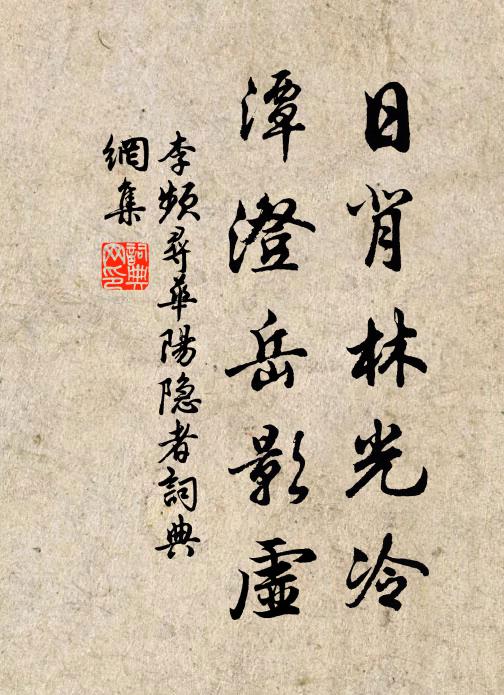 日背林光冷
潭澄岳影虛
李頻尋華陽隐者詞典
網集
詞典
网印